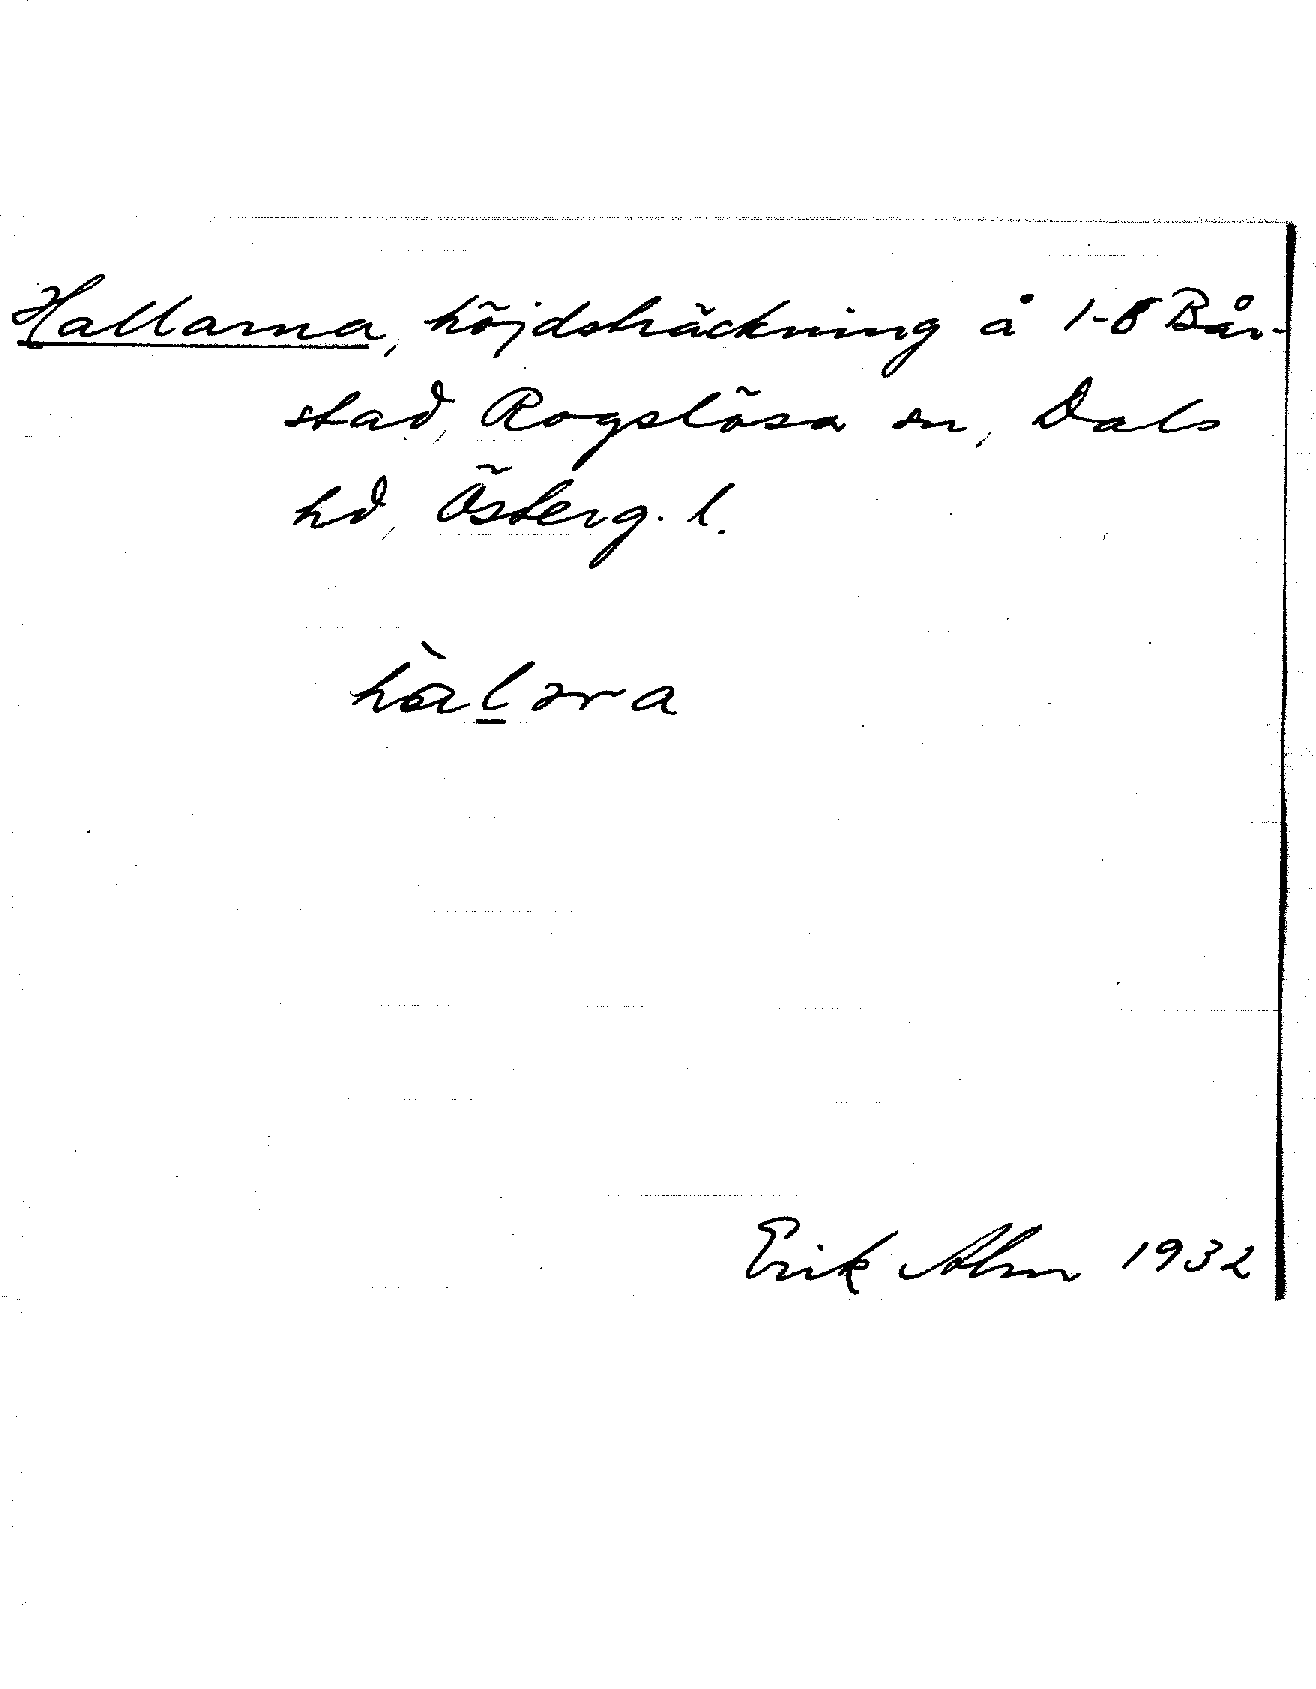 Hallarna, höjdsträckning å 1-8 Bår-
stad, Rogslösa sn, Dals
hd, Österg. l.
hàl̲ɔra
Erik Alm 1932